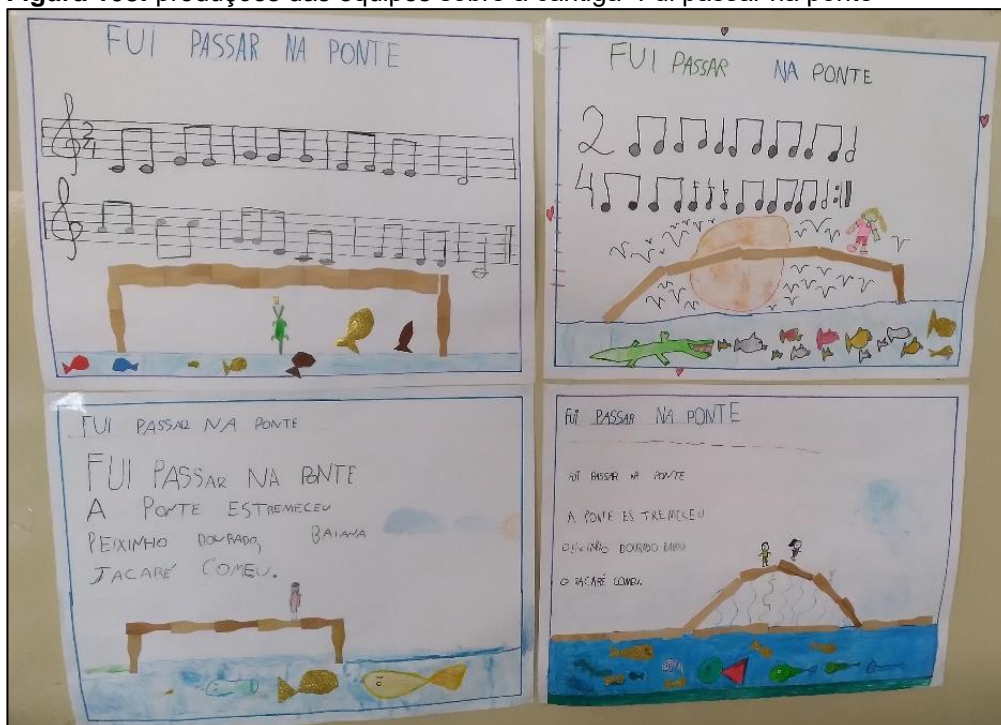 FUI PASSAR NA PONTE
2
4
FUI PASSAR NA PONTE
2
4
FUI PASSAR NA PONTE
FUI PASSAR NA PONTE
A PONTE ESTREMECEU
PEIXINHO DOURADO, BAIANA
JACARÉ COMEU.
FUI PASSAR NA PONTE
FUI PASSAR NA PONTE
A PONTE ES TREMECEU
DOURADO
O JACARÉ COMEU.